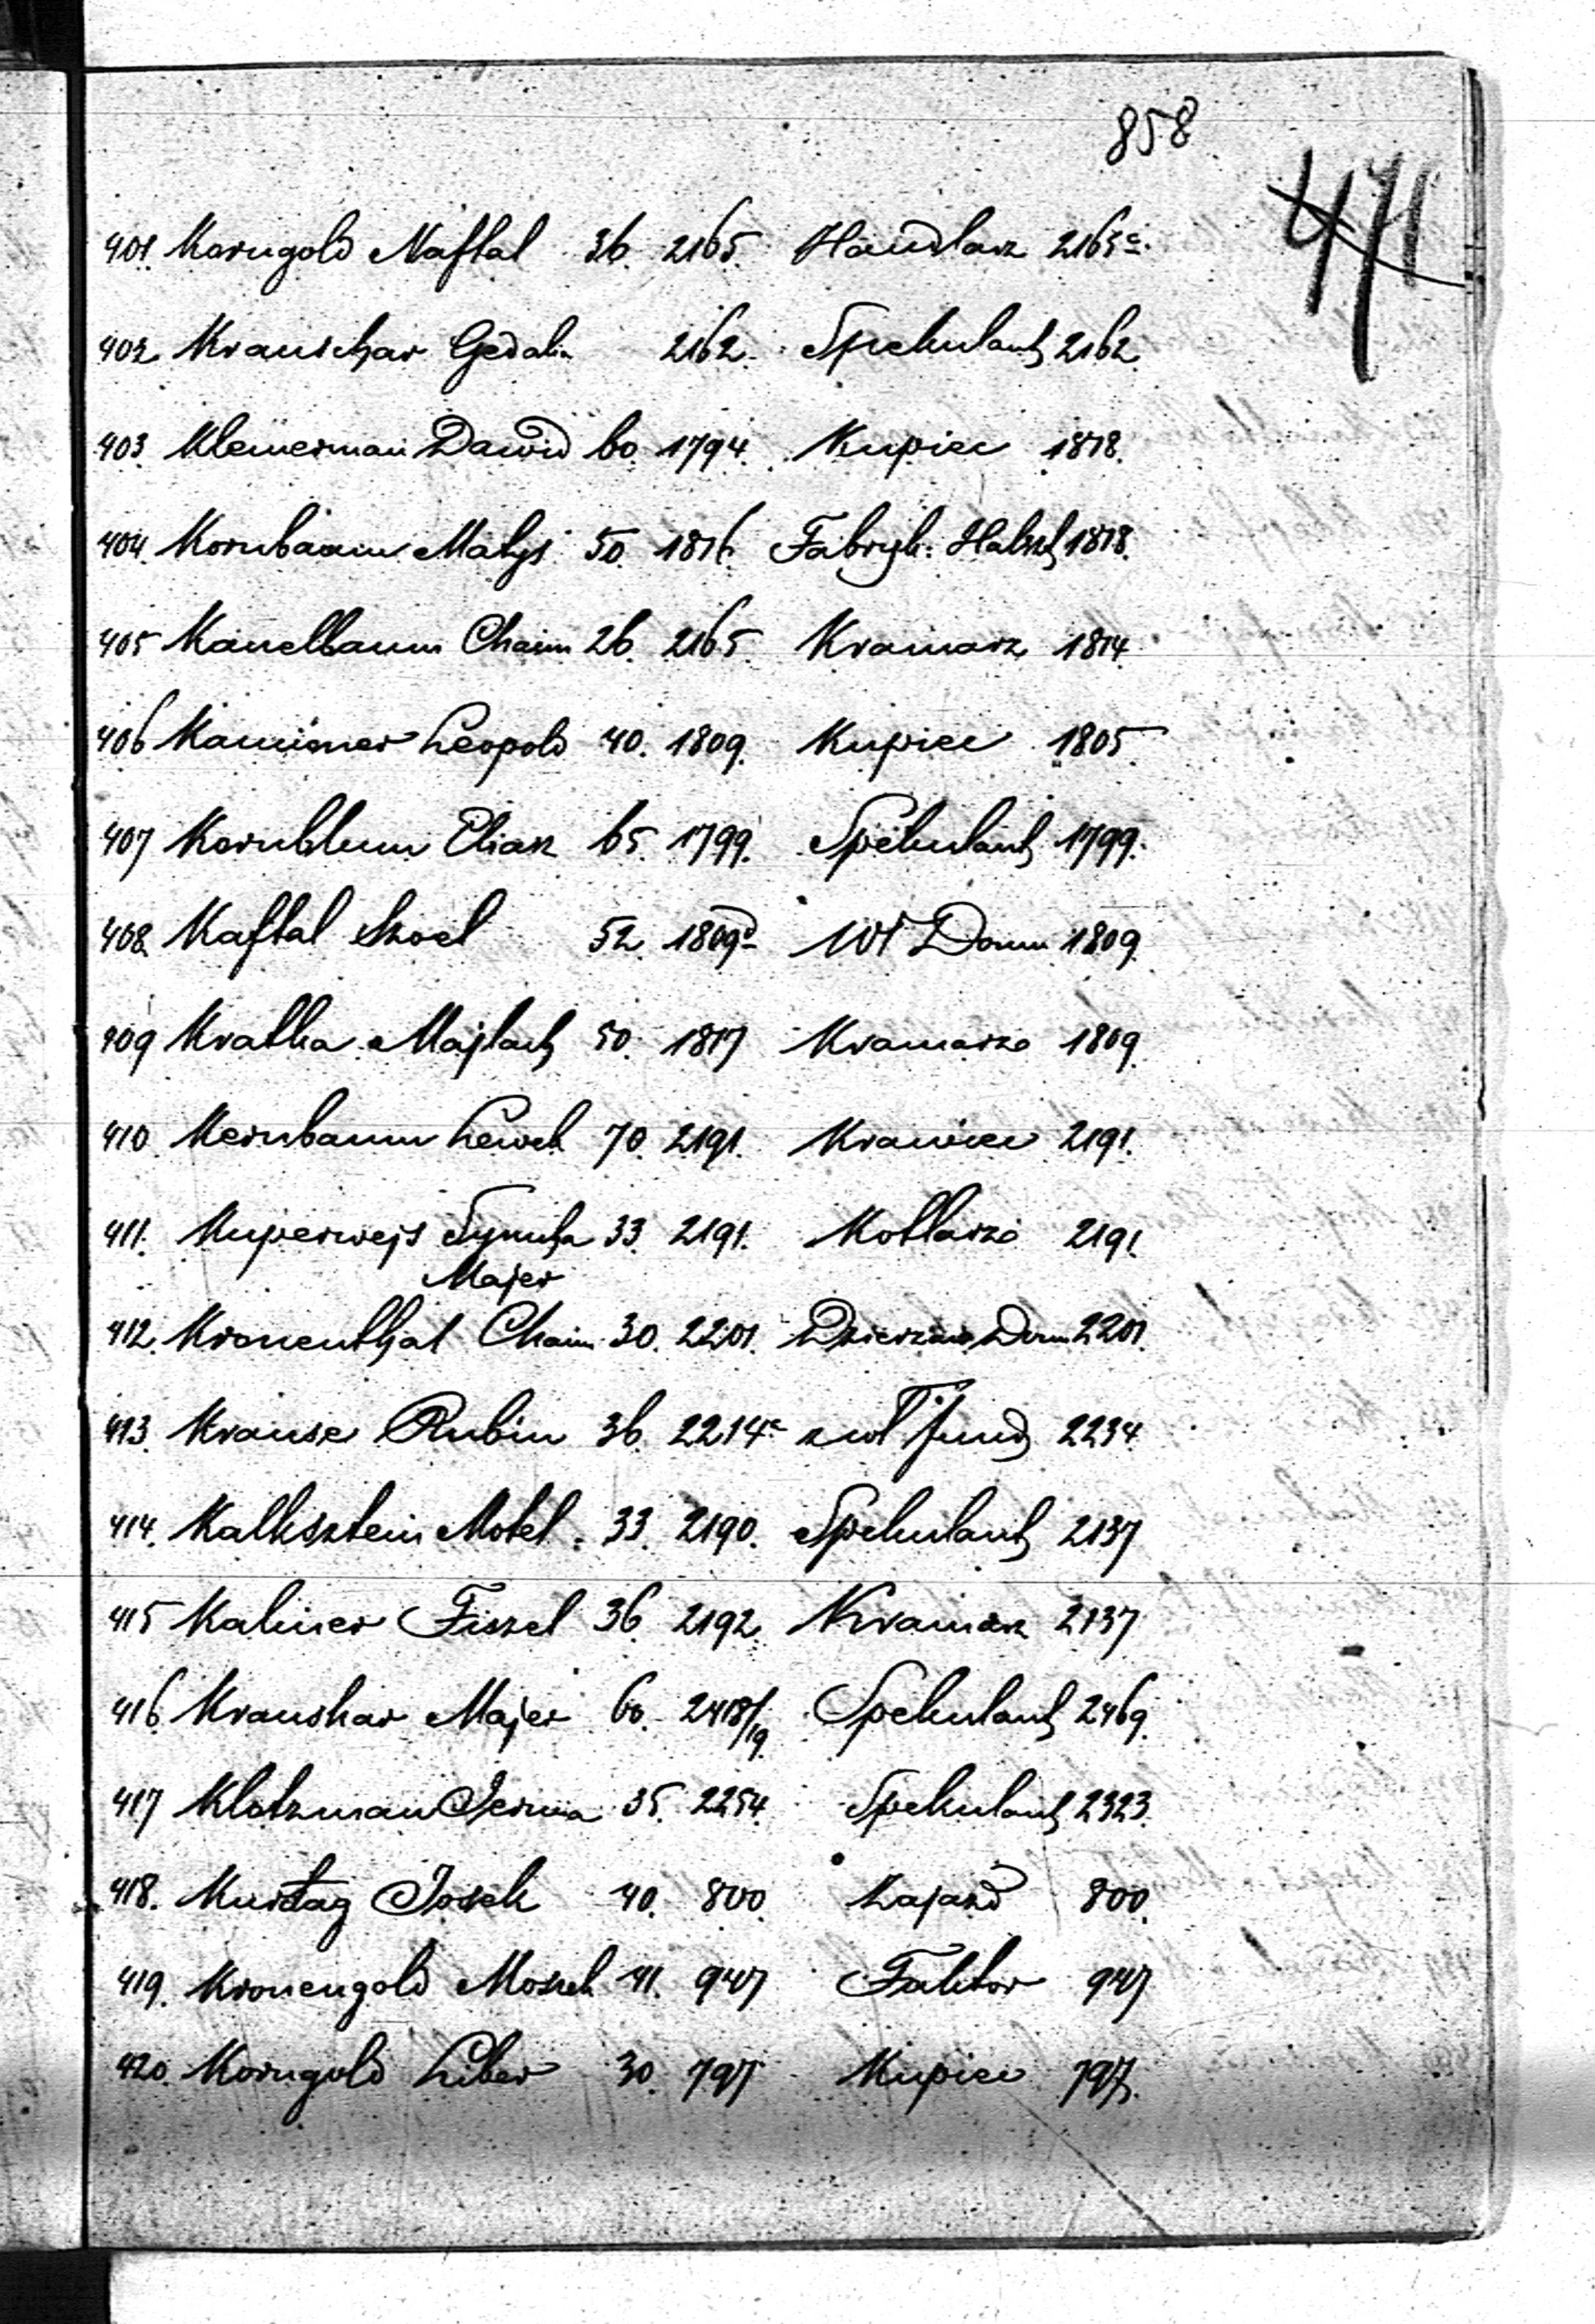 858
471
401. Korngold Naftal 36. 2165. Handlarz 2165c.
402 Krauschar Gedalia 2162. Spekulant 2162.
403. Klemerman Dawid 60. 1794. Kupiec 1818.
404. Kornbaum Matys 50. 1816. Fabryk: 1818.
405 Kanelbaum Chaim 26. 2165. Kramarz 1814.
406 Kamioner Leopold 40. 1809. Kupiec 1805.
407 Kornblum Eliasz 65. 1799. Spekulant 1799.
408. Kaftal Szoel 52. 1809d Wł Domu 1809.
409 Kratka Majlach 50. 1817 Kramarz 1809.
410. Kernbaum Lewek 70. 2191. Krawiec 2191.
411. Kuperwejs Symcha 33. 2191. Kotlarz 2191.
Majer
412. Kronenthal Chaim 30. 2201. Dzierżaw Dom 2201.
413. Krause Rubin 36. 2214c 2234
414. Kalksztein Motel. 33. 2190. Spekulant 2137
415 Kaliner Fiszel 36. 2192. Kramarz 2137
416. Kraushar Majer 60. 2418/19. Spekulant 2469.
417 Klotzman 35. 2254. Spekulant 2323.
418. Kurtag Josek 40. 800. Zajazd 800.
419. Kronengold Moszek 41. 947 Faktor 947
420. Korngold Liber 30. 797 Kupiec 797.